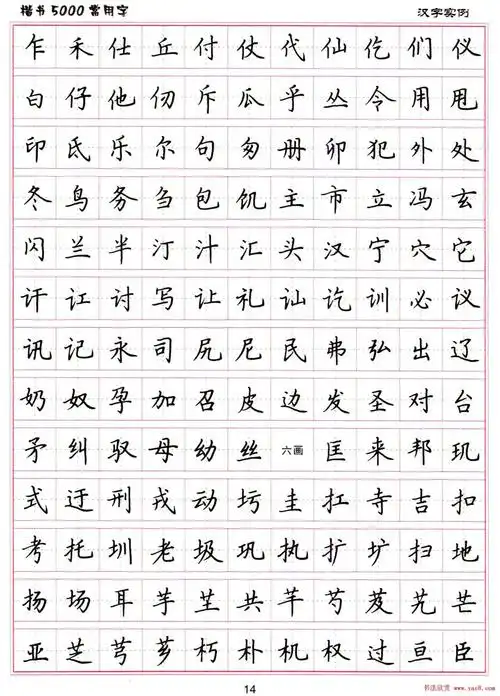 楷书5000常用字 汉字实例
乍 禾 仕 丘 付 仗 代 仙 仡 们 仪
白 仔 他 仞 斥 瓜 乎 丛 令 用 甩
印 氐 乐 尔 句 匆 册 卯 犯 外 处
冬 鸟 务 刍 包 饥 主 市 立 冯 玄
闪 兰 半 汀 汁 汇 头 汉 宁 穴 它
讦 讧 讨 写 让 礼 讪 讫 训 必 议
讯 记 永 司 尻 尼 民 弗 弘 出 辽
奶 奴 孕 加 召 皮 边 发 圣 对 台
矛 纠 驭 母 幼 丝 六画 匡 耒 邦 玑
式 迂 刑 戎 动 圬 圭 扛 寺 吉 扣
考 托 圳 老 圾 巩 执 扩 圹 扫 地
扬 场 耳 芋 芏 共 芊 芍 芨 芄 芒
亚 芝 芎 芗 朽 朴 机 权 过 亘 臣
14
书法欣赏
www.yac8.com